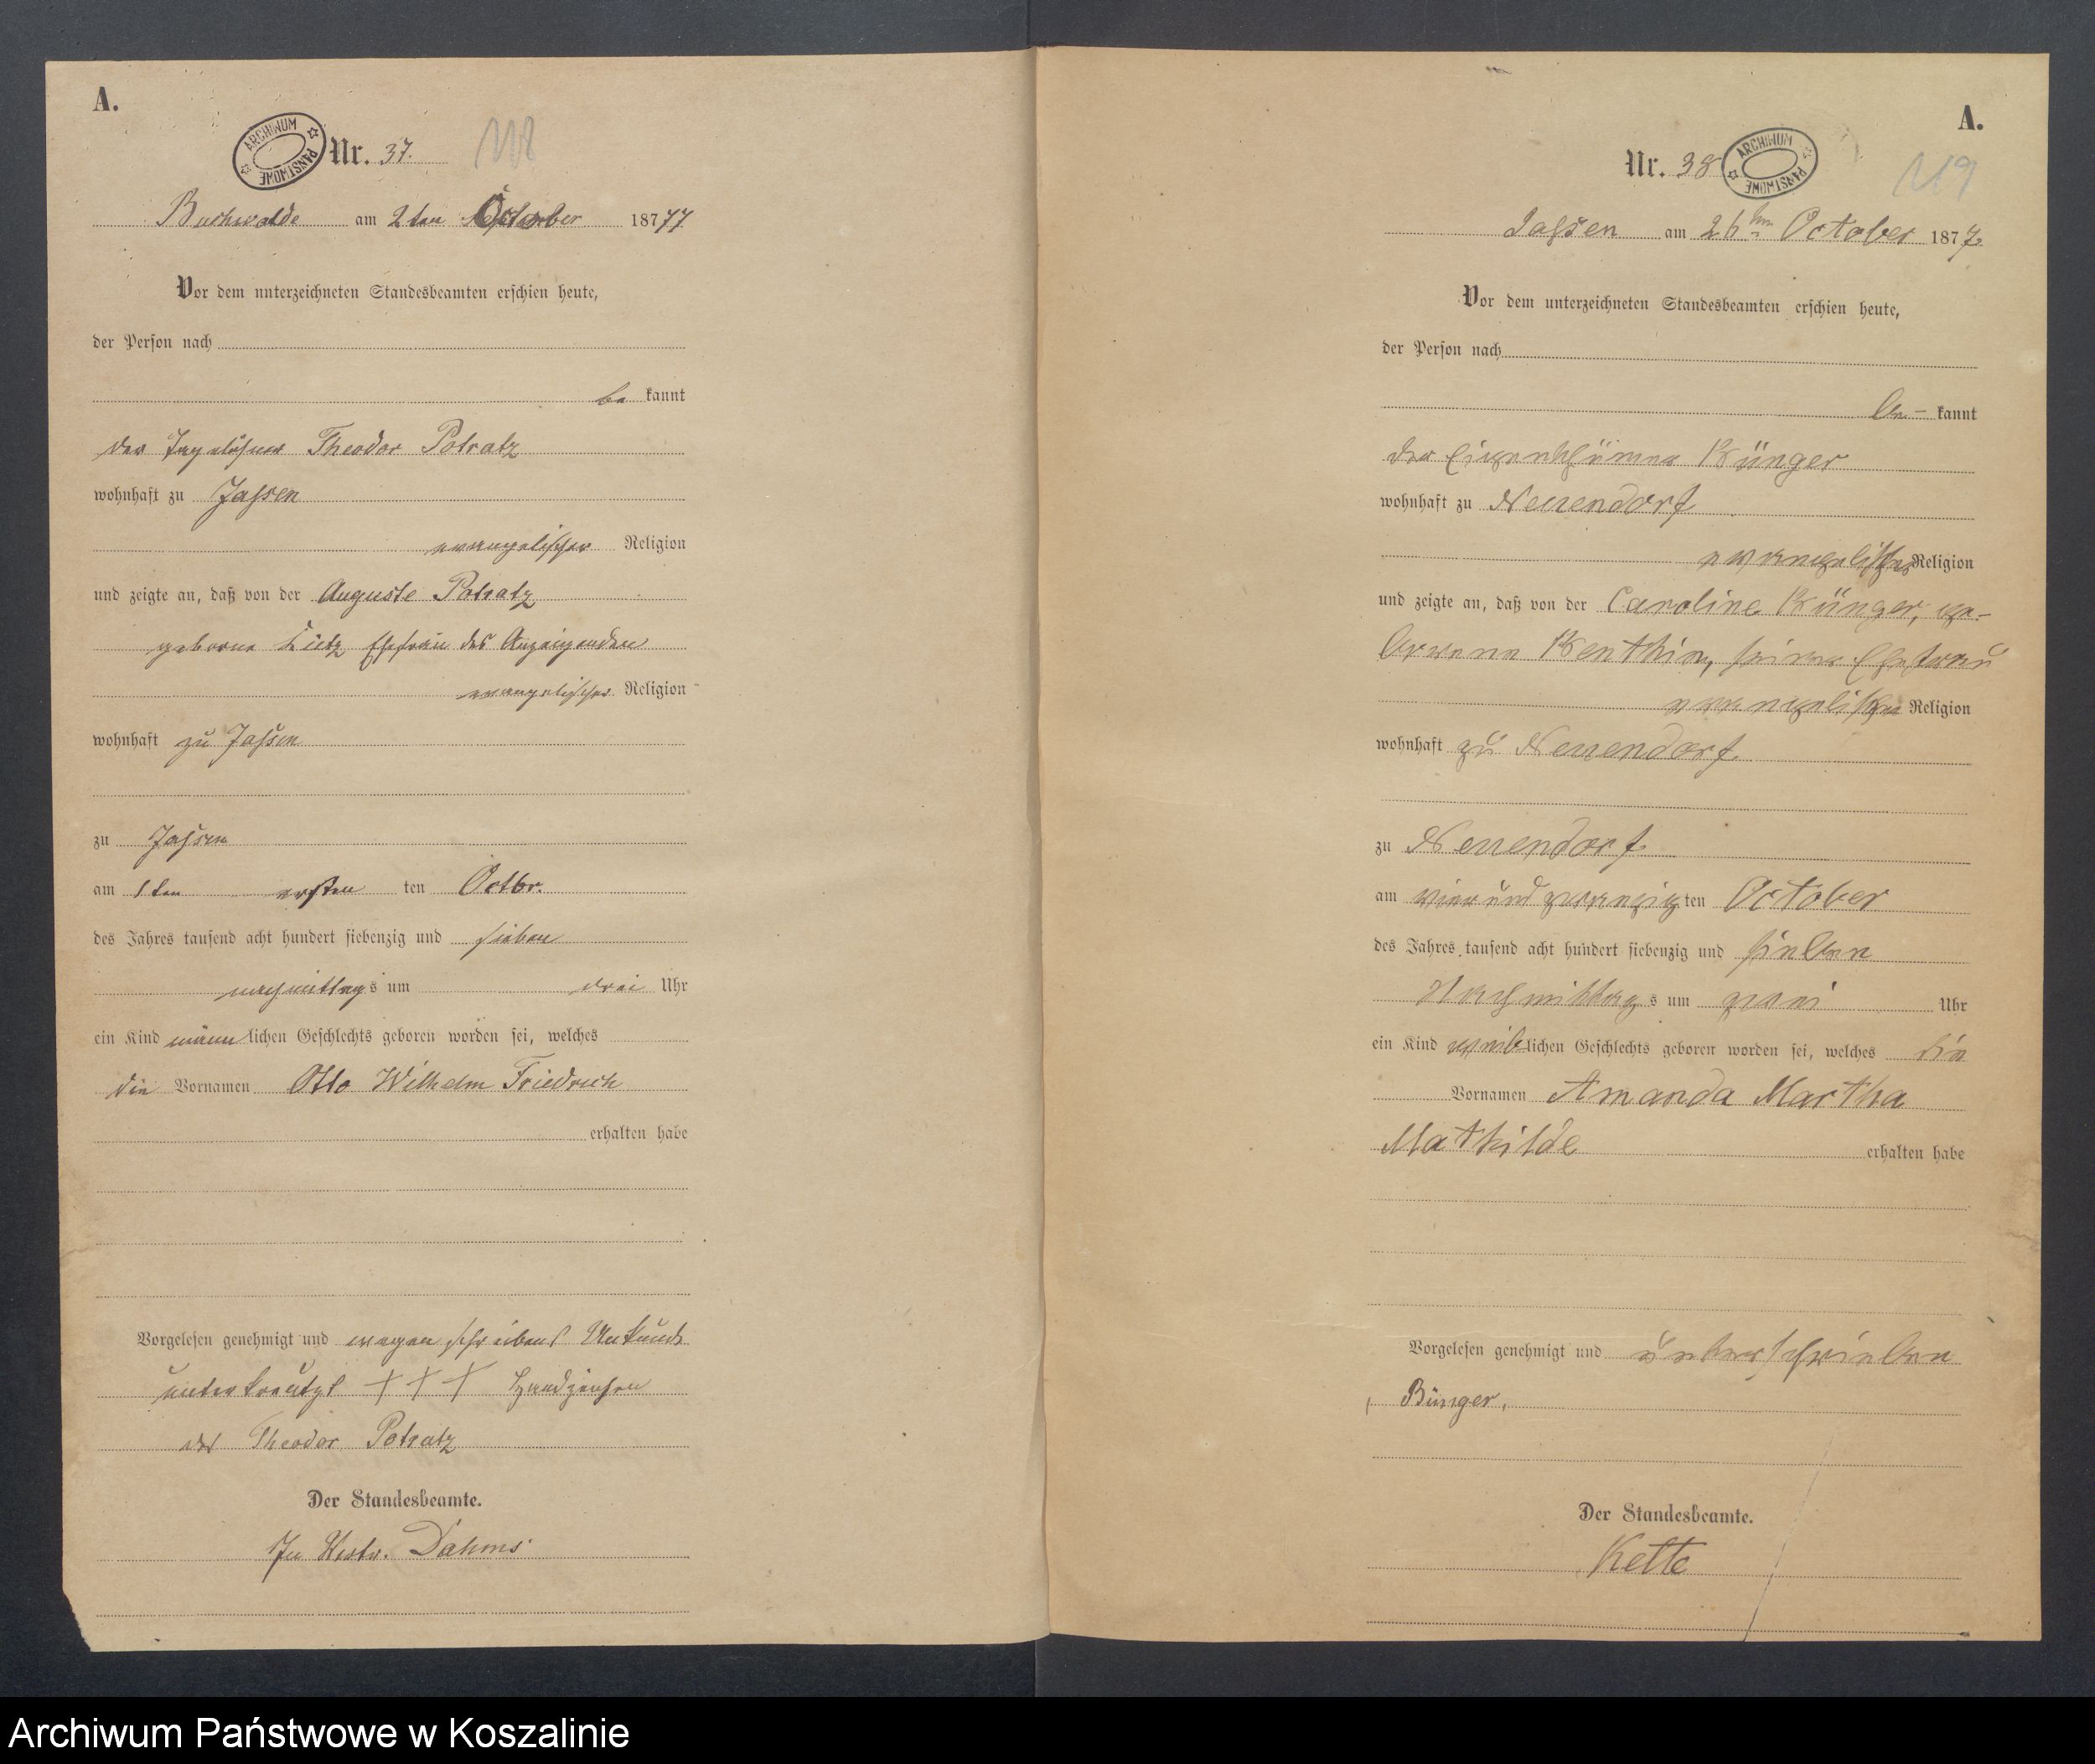 A.
ARCHIWUM PAŃSTWOWE
Nr. 37.
118
Buchwalde am 2ten October 1877
Vor dem unterzeichneten Standesbeamten erschien heute,
der Person nach
be kannt
der Tagelöhner Theodor Potratz
wohnhaft zu Jassen
evangelischer Religion
und zeigte an, daß von der Auguste Potratz
geborne Lietz Ehefrau des Anzeigenden
evangelischer Religion
wohnhaft zu Jassen
zu Jassen
am 1ten ersten ten Octbr.
des Jahres tausend acht hundert siebenzig und sieben
nachmittags um drei Uhr
ein Kind männlichen Geschlechts geboren worden sei, welches
die Vornamen Otto Wilhelm Friedrich
erhalten habe
Vorgelesen genehmigt und wegen schreibens Unkunde
unterkreutzt +++ Handzeichen
des Theodor Potratz
Der Standesbeamte.
In Vertr. Dahms
A.
Nr. 38
ARCHIWUM PAŃSTWOWE
119
Jassen am 26ten October 1877.
Vor dem unterzeichneten Standesbeamten erschien heute,
der Person nach
be- kannt
der Eigenthümer Bünger
wohnhaft zu Neuendorf
evangelischer Religion
und zeigte an, daß von der Caroline Bünger, ge-
borene Benthin, seiner Ehefrau
evangelischer Religion
wohnhaft zu Neuendorf
zu Neuendorf
am vierundzwanzigten October
des Jahres tausend acht hundert siebenzig und sieben
Nachmittags um zwei Uhr
ein Kind weiblichen Geschlechts geboren worden sei, welches die
Vornamen Amanda Martha
Mathilde erhalten habe
Vorgelesen genehmigt und unterschrieben
Bünger.
Der Standesbeamte.
Kette
Archiwum Państwowe w Koszalinie